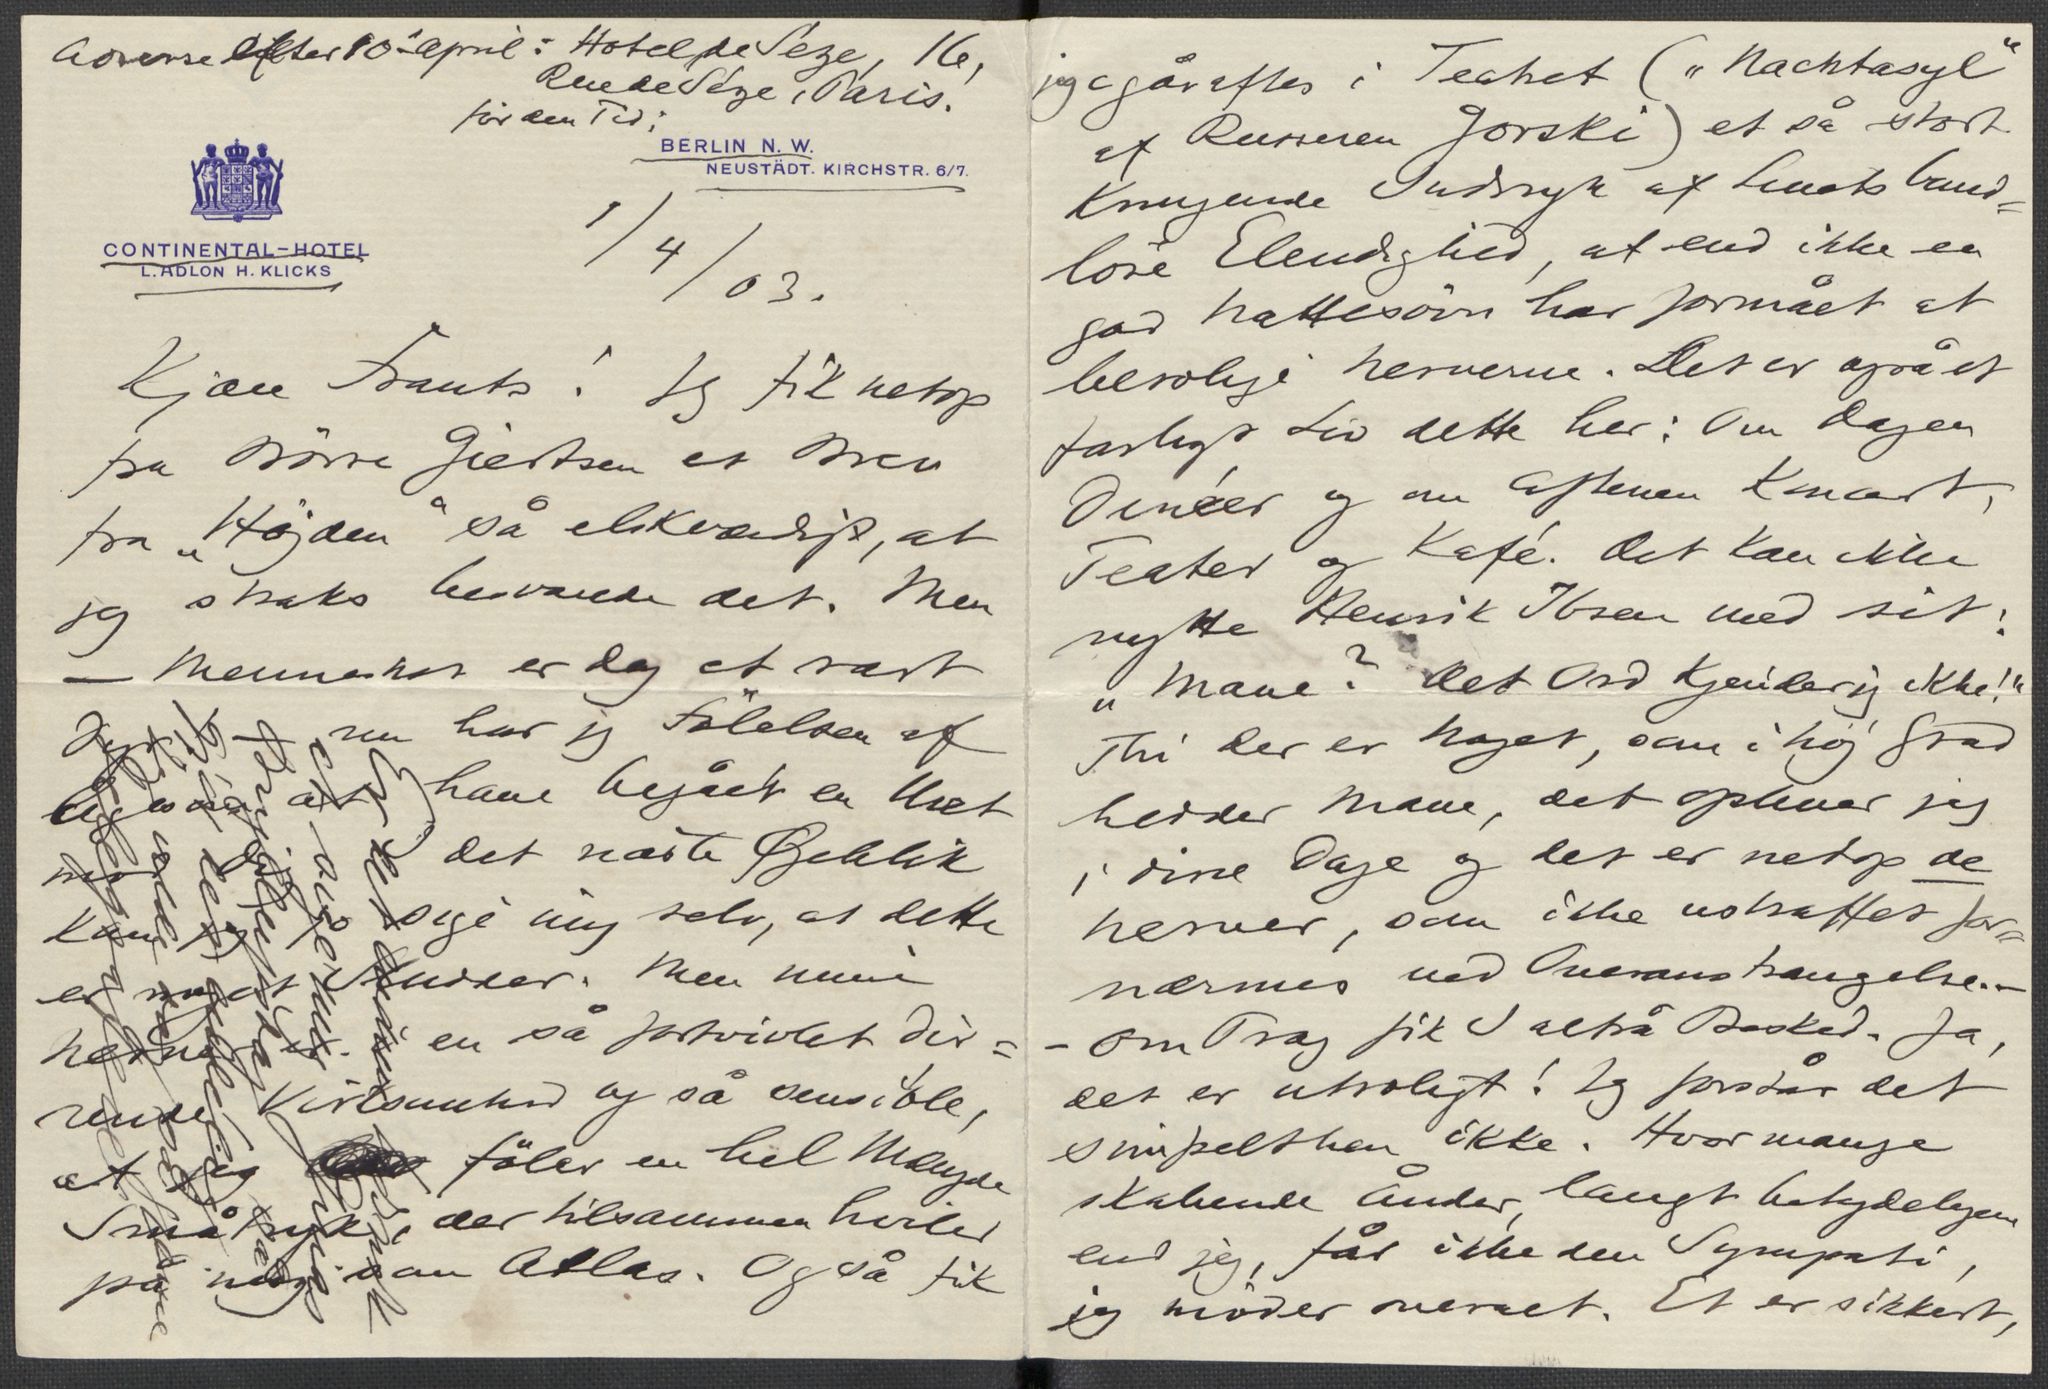 Adresse efter 10de April: Hotel de Seze, 16,
Rue de Sèze, Paris.
for den Tid:
BERLIN N. W.
NEUSTÄDT. KIRCHSTR. 6/7.
CONTINENTAL-HOTEL
L. ADLON H. KLICKS
1/4/03.
Kjære Frants! Jeg fik netop
fra Börre Giertsen et Brev
fra „Höjden“ så elskværdigt, at
jeg straks besvarede det. Men
– Mennesket er dog et rart
Dyr – nu har jeg Fölelsen af
ligesom at have begået en Uret
mod Dig. I det næste Øjeblik
kan jeg sige mig selv, at dette
er noget Sludder. Men mine
Nerver er i en så fortvivlet dir=
rende Virksomhed og så sensible,
at jeg föler en hel Mængde
Småtryk, der tilsammen hviler
på mig som Atlas. Og så fik
jeg igåraftes i Teatret („Nachtasyl“
af Russeren Gorski) et så stort
knugende Indtryk af Livets bund=
löse Elendighed, at end ikke en
god Nattesövn har formået at
berolige Nerverne. Det er også et
farligt Liv dette her: Om Dagen
Dinéer og om Aftenen Koncert,
Teater og Kafé. Det kan ikke
nytte Henrik Ibsen med sit:
„Mave? Det Ord kjender jeg ikke!“
Thi der er Noget, som i höj Grad
hedder Mave, det oplever jeg
i disse Dage og det er netop de
Nerver, som ikke ustraffet for=
nærmes ved Overanstrængelse. –
– Om Prag fik I altså Besked. Ja,
det er utroligt! Jeg forstår det
simpelthen ikke. Hvor mange
skabende Ånder, langt betydeligere
end jeg, får ikke den Sympati,
jeg möder overalt. Et er sikkert,